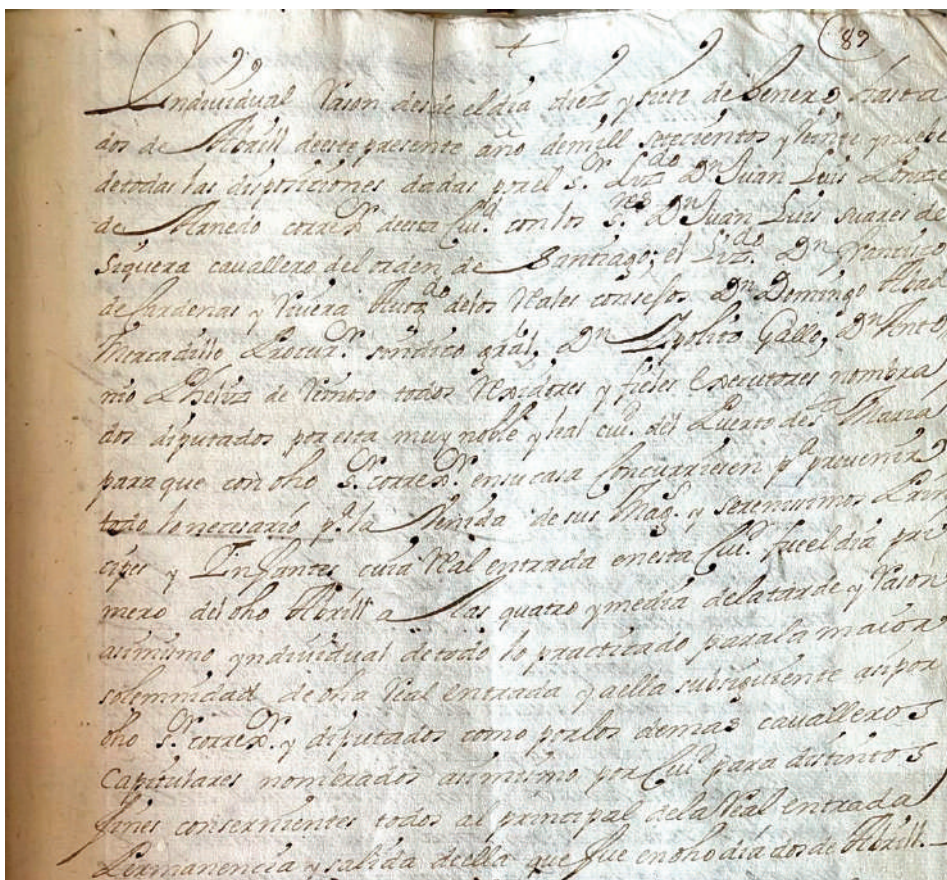 89
Yndividual Rason desde el dia diez y siete de henero hasta
dos de Abrill deeste presente año demill setecientos y veinte y nueve
detodas las disposiciones dadas porel Sr. Lizdo. Dn Juan Luis
de correxr. deesta Ciud. conlos Sres. Dn Juan Luis suares de
Siguera cavallero del orden de Santiago; el Lizdo. Dn Francisco
de Cardenas y Rivera delos Reales consejos Dn Domingo Abad
Mercadillo Procurr. sindico gral, Dn Ypolito Gallo, Dn Anto
nio de Reinoso todos Rexidores y fieles executores nombra
dos diputados por esta muy noble y leal ciud. del Puerto de Sta Maria
para que con dho Sr. correxr. ensu casa Concurriesen pa prevenir
todo lo necesario pa. la Venida de sus Mags. y serenisimos Prin
cipes y Infantes cuia Real entrada enesta Ciud. fue el dia pri
mero del dho Abrill a las quatro y media dela tarde y Rason
asimismo yndividual de todo lo practicado parala maior
solemnidad de dha Real entrada y aella subsiguiente asi por
dho Sr. correxr. y diputados como porlos demas cavalleros
Capitulares nombrados asimismo por Ciud para distintos
fines consernientes todos al principal dela Real entrada
Permanencia y salida deella que fue en dho dia dos de Abrill.